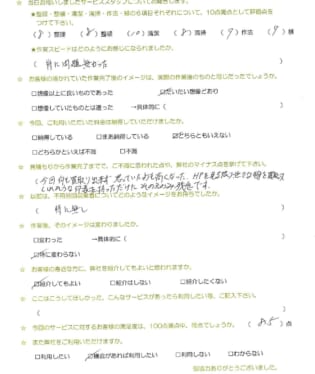 ☆ 当日お伺いしましたサービススタッフについてお聞きします。
★整理・整頓・清潔・清掃・作法・躾の6項目それぞれについて、10点満点として評価点をつけて下さい。
( 8 ) 整理 ( 8 ) 整頓 ( 10 ) 清潔 ( 8 ) 清掃 ( 9 ) 作法 ( 9 ) 躾
★作業スピードはどのようにお感じになられましたか。
( 特に問題無かった )
☆ お客様の描かれていた作業完了後のイメージは、実際の作業後のものと同じだったでしょうか。
□想像以上に良いものであった ☑だいたい想像どおり
□想像していたものとは違った →具体的に( )
☆ 今回、ご利用いただいた料金は納得していただけましたか。
□納得している □まあ納得している ☑どちらともいえない
□どちらかといえば不満 □不満
☆ 見積もりから作業完了までで、ご不満に思われた点や、弊社のマイナス点を挙げて下さい。
☆ 以前は、不用品回収業者についてどのようなイメージをお持ちでしたか。
( 特に無し )
☆ 作業後、そのイメージは変わりましたか。
□変わった →具体的に( )
☑特に変わらない
☆ お客様の身近な方に、弊社を紹介してもよいと思われますか。
☑紹介してもよい □紹介はしない □紹介したくない
☆ ここはこうしてほしかった、こんなサービスがあったら利用したい等、ご記入下さい。
( )
☆ 今回のサービスに対するお客様の満足度は、100点満点中、何点でしょうか。 ( 85 ) 点
☆ また弊社をご利用いただけますか。
□利用したい ☑機会があれば利用したい □利用しない □わからない
ご協力ありがとうございました。